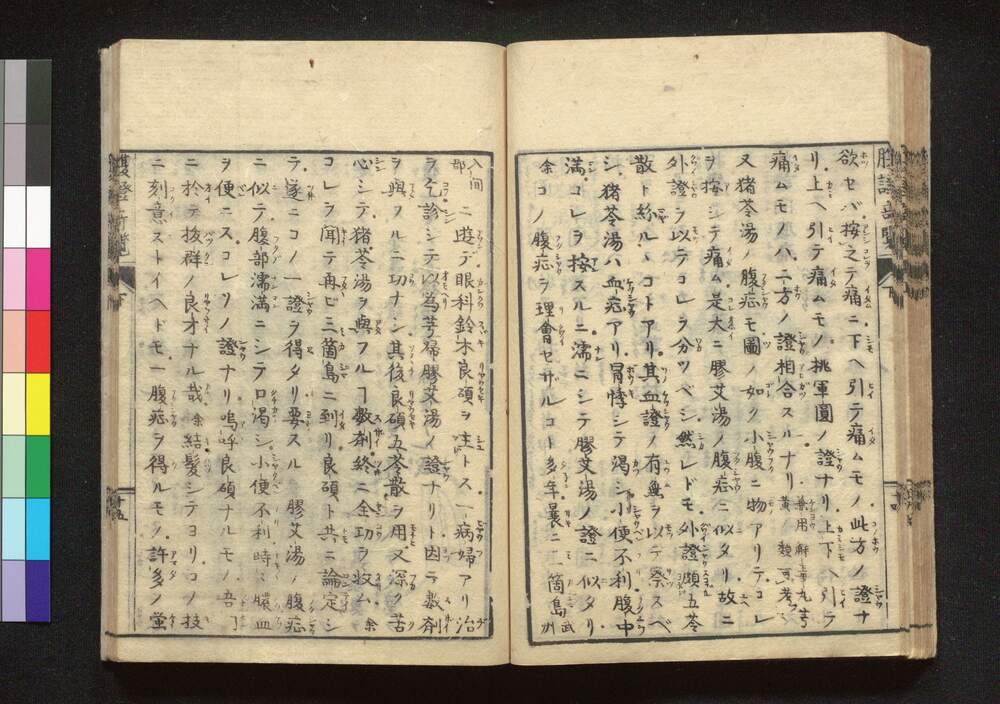 欲セバ按之テ痛ニ下ヘ引テ痛ムモノ此方ノ證ナ
リ上ヘ引テ痛ムモノ桃軍圓ノ證ナリ上下ヘ引テ
痛ムモノハ二方ノ證相合スルナリ
又猪苓湯ノ腹痃モ圖ノ如ク小腹ニ物アリテコレ
ヲ按シテ痛ム是大ニ膠艾湯ノ腹痃ニ似タリ故ニ
外證ヲ以テコレヲ分ツベシ然レドモ外證頗五苓
散ト紛ルヽコトアリ其血證ノ有無ヲ以テ察スベ
シ猪苓湯ハ血痃アリ冒悸シテ渇シ小便不利腹中
満コレヲ按スルニ濡ニシテ膠艾湯ノ證ニ似タリ
余コノ腹痃ヲ理會セザルコト多年曩ニ三箇島武州
入間郡ニ遊デ眼科鈴木良碩ヲ主トス一病婦アリ治
ヲ乞診シテ以為芎歸膠艾湯ノ證ナリト因テ数劑
ヲ與フルニ功ナシ其後良碩五苓散ヲ用又深ク苦
心シテ猪苓湯ヲ與フルヿ数劑終ニ全功ヲ收ム余
コレヲ聞テ再ビ三箇島ニ到リ良碩ト共ニ論定シ
テ遂ニコノ一證ヲ得タリ要スルニ膠艾湯ノ腹痃
ニ似テ腹部濡満ニシテ口渇シ小便不利時々膿血
ヲ便ニスコレソノ證ナリ嗚呼良碩ナルモノ吾門
ニ於テ抜群ノ良才ナル哉余結髪シテヨリコノ技
ニ刻意ストイヘドモ一腹痃ヲ得ルモノ許多ノ螢
下
十五